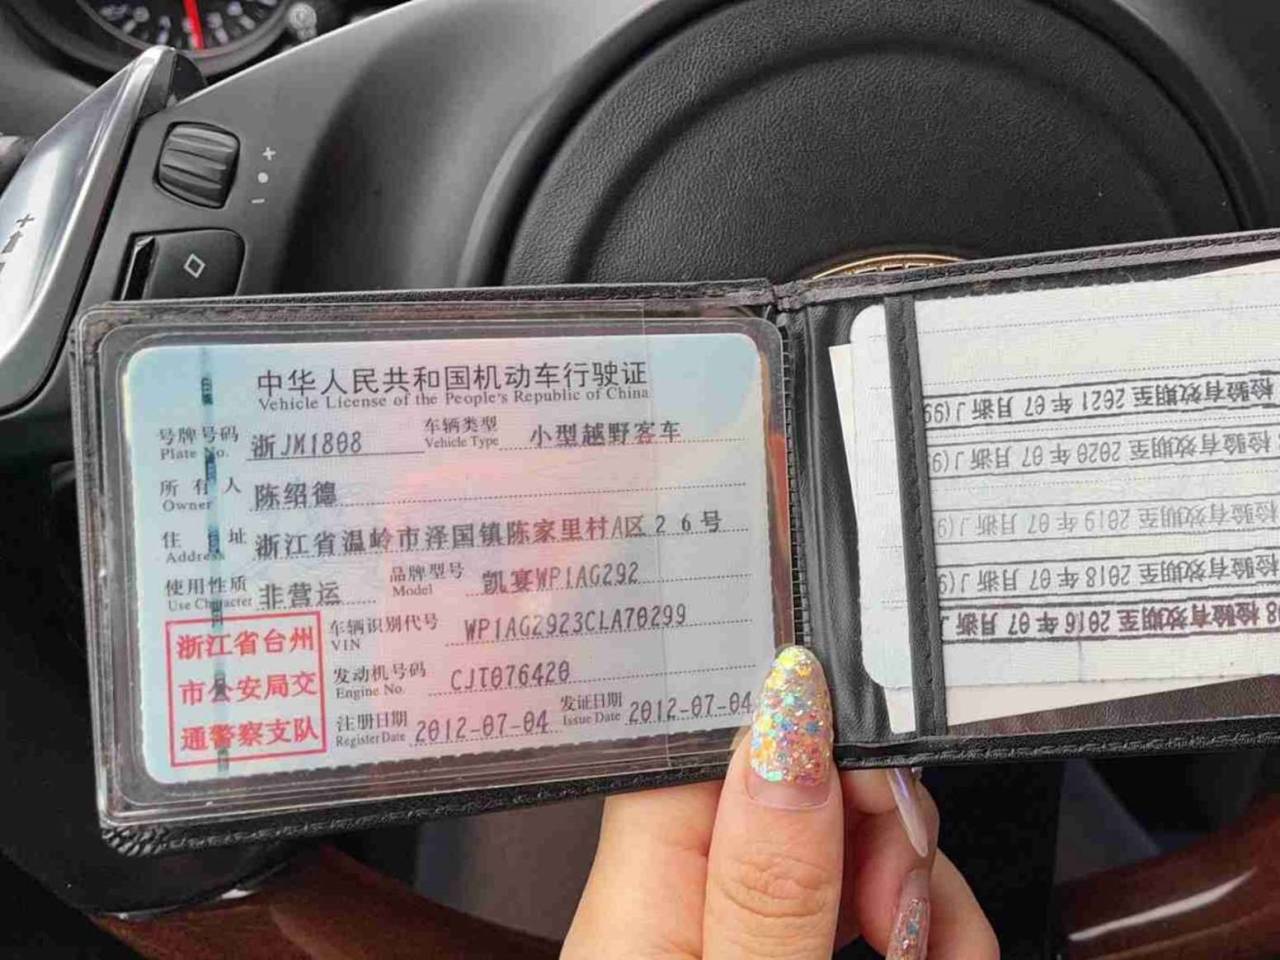 中华人民共和国机动车行驶证
Vehicle License of the People's Republic of China
号牌号码 浙JM1808 车辆类型 小型越野客车
Plate No. Vehicle Type
所有人 陈绍德
Owner
住址 浙江省温岭市泽国镇陈家里村A区26号
Address
使用性质 非营运 品牌型号 凯宴WP1AG292
Use Character Model
浙江省台州
市公安局交
通警察支队
车辆识别代号 WP1AG2923CLA70299
VIN
发动机号码 CJT076420
Engine No.
注册日期 2012-07-04 发证日期 2012-07-04
Register Date Issue Date
检验有效期至2021年07月浙J(99
检验有效期至2020年07月浙J(9
检验有效期至2019年07月浙J(9
检验有效期至2018年07月浙J(9
检验有效期至2016年07月浙